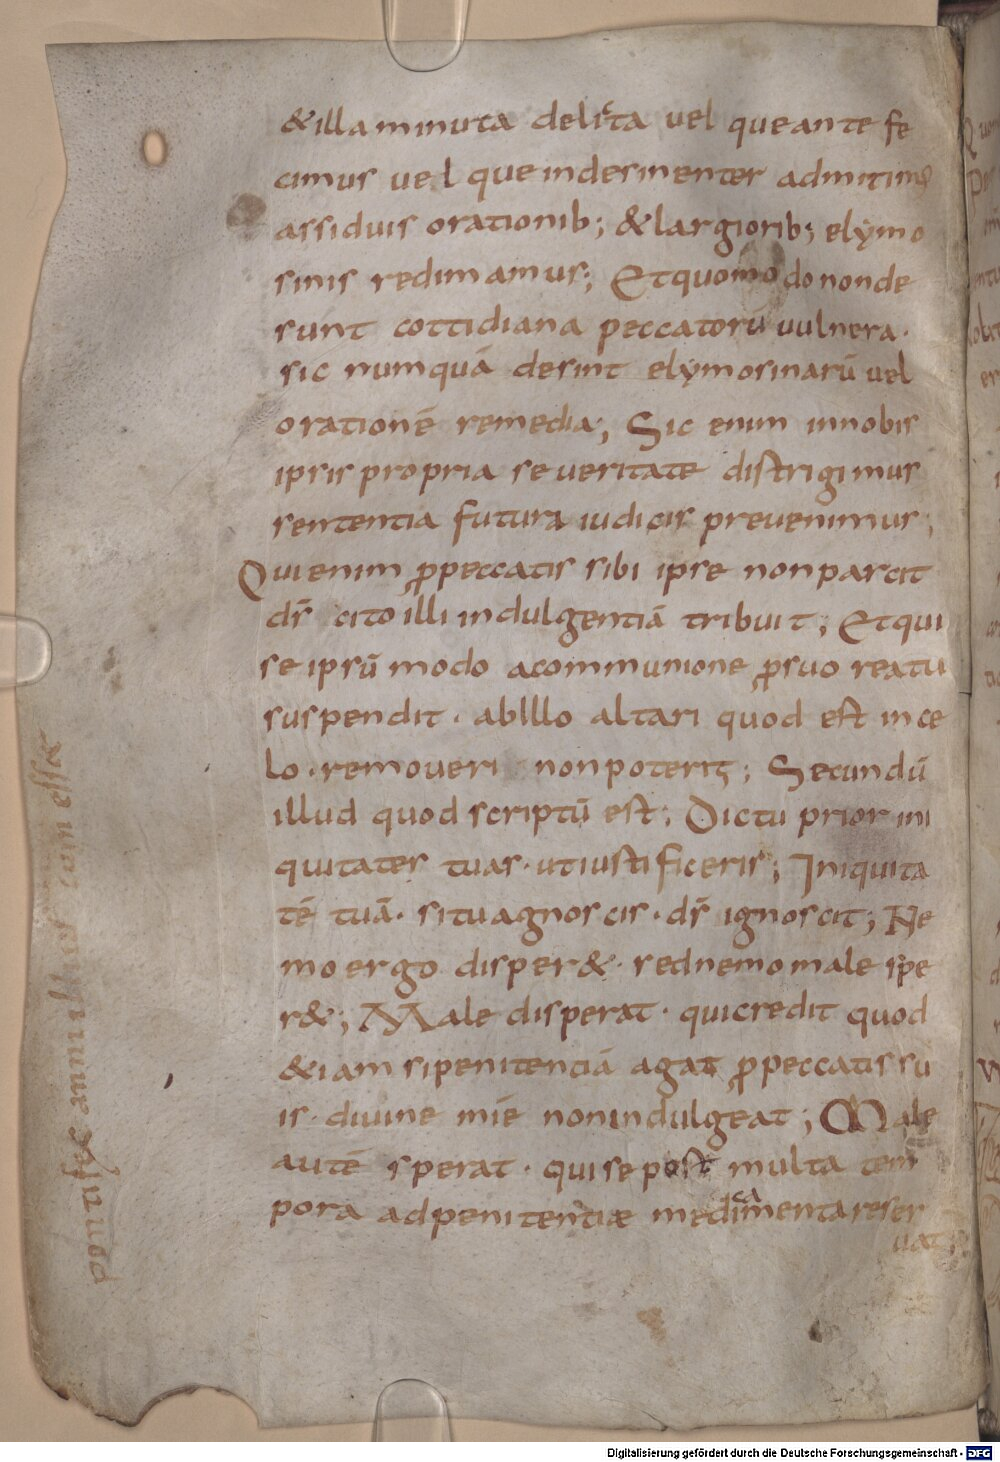 & illa minuta delicta vel que ante fe
cimus vel que indesinenter admitimus
assiduis orationib; & largiorib; elymo
sinis redimamus; Et quomodo non de
sunt cottidiana peccatoru vulnera.
sic numquā desint elymosinarū vel
orationē remedia; Sic enim in nobis
ipsis propria severitate distrigimus
sententia futura iudicis prevenimus;
Qui enim ꝓ peccatis sibi ipse non parcit
ds̄ cito illi indulgentiā tribuit; Et qui
se ipsū modo a communione ꝓ suo reatu
suspendit. ab illo altari quod est in ce
lo. removeri non poterit; Secundū
illud quod scriptū est; Dic tu prior ini
quitates tuas. ut iustificeris; Iniquita
tē tuā. si tu agnoscis. ds̄ ignoscit; Ne
mo ergo disper&. sed nemo male spe
r&; Male disperat. qui credit quod
&iam si penitentiā agat ꝓ peccatis su
is. divine mīe non indulgeat; Male
autē sperat. qui se post multa tem
pora ad penitentiæ medicamenta reser
vat;
pontifex
Digitalisierung gefördert durch die Deutsche Forschungsgemeinschaft - DFG